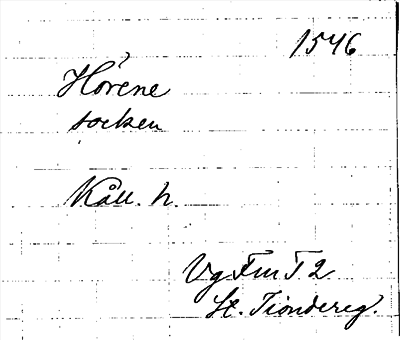 1546
Hörene
socken
Kåll. h.
Vg Fm T 2
St. Tiondereg.